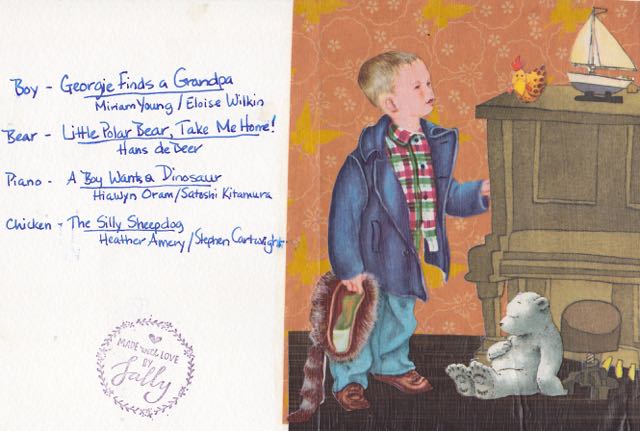 Boy - Georgie Finds a Grandpa
Miriam Young / Eloise Wilkin
Bear - Little Polar Bear, Take Me Home!
Hans de Beer
Piano - A Boy Wants a Dinosaur
Hiawyn Oram/Satoshi Kitamura
Chicken - The Silly Sheepdog
Heather Amery/Stephen Cartwright
MADE with LOVE
BY
Sally